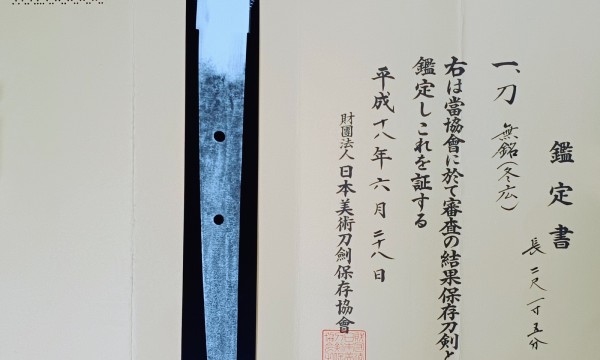 鑑定書
一、刀 無銘(冬広)
長二尺一寸五分
右は當協會に於て審査の結果保存刀剣と
鑑定しこれを証する
平成十八年六月二十八日
財團法人日本美術刀劍保存協會